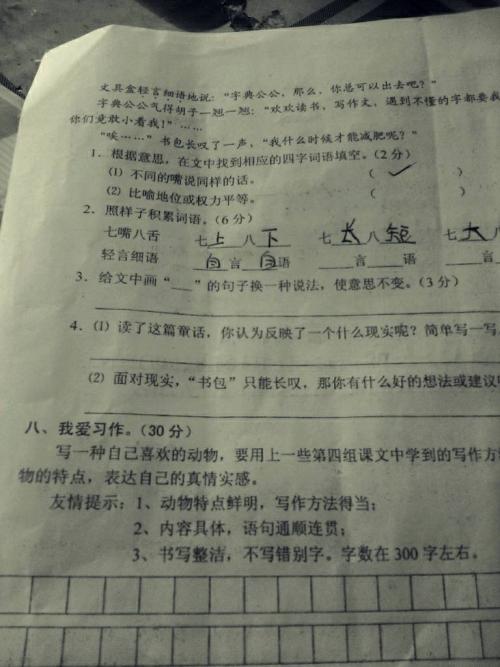 文具盒轻言细语地说：“字典公公，那么，你总可以出去吧？”
字典公公气得胡子一翘一翘：“欢欢读书，写作文，遇到不懂的字都要我
你们竟敢小看我！”……
“唉……”书包长叹了一声，“我什么时候才能减肥呢？”
1．根据意思，在文中找到相应的四字词语填空。（2 分）
(1) 不同的嘴说同样的话。 （ ✓ ）
(2) 比喻地位或权力平等。 （ ）
2．照样子积累词语。（6 分）
七嘴八舌 七上八下 七长八短 七大八
轻言细语 自言自语 ___言___语 ___言
3．给文中画“___”的句子换一种说法，使意思不变。（3 分）
4．(1) 读了这篇童话，你认为反映了一个什么现实呢？简单写一写
(2) 面对现实，“书包”只能长叹，那你有什么好的想法或建议
八、我爱习作。（30 分）
写一种自己喜欢的动物，要用上一些第四组课文中学到的写作方
物的特点，表达自己的真情实感。
友情提示：1、动物特点鲜明，写作方法得当；
2、内容具体，语句通顺连贯；
3、书写整洁，不写错别字。字数在 300 字左右。